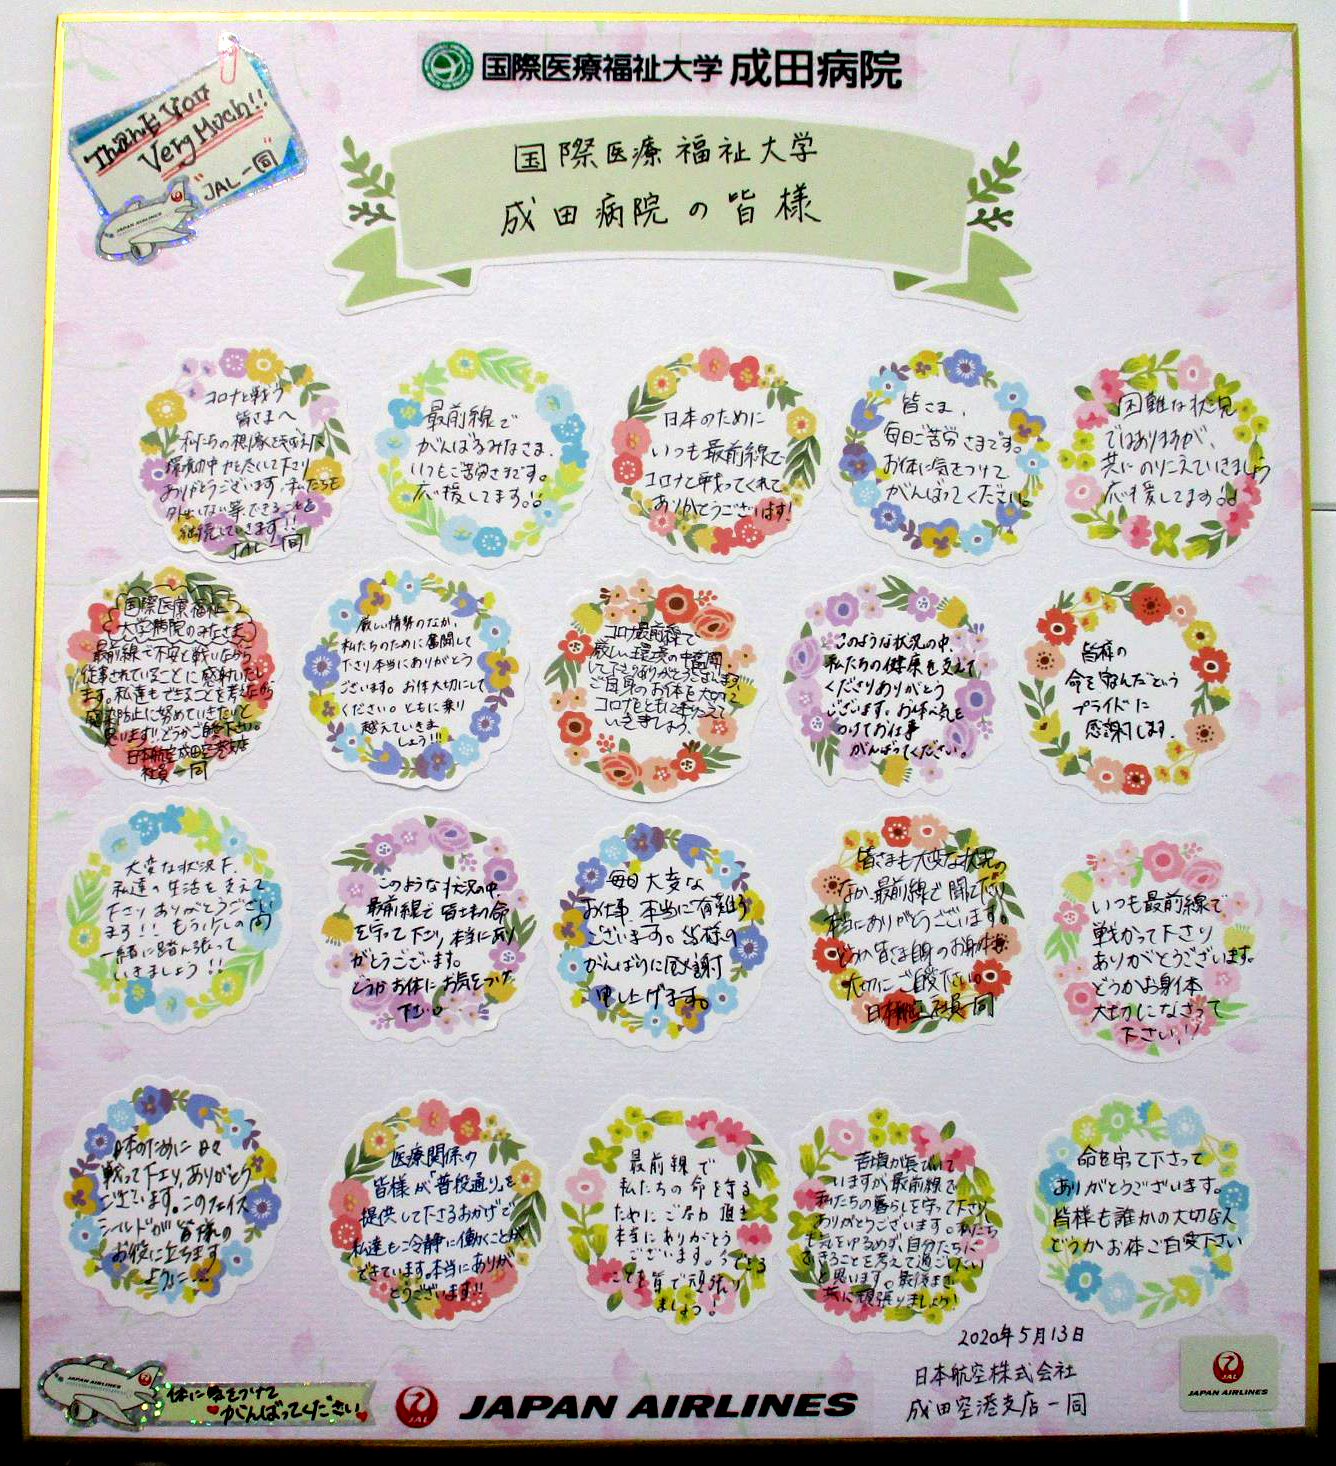 国際医療福祉大学 成田病院
Thank You
Very Much!!
JAL一同
JAPAN AIRLINES
国際医療福祉大学
成田病院の皆様
コロナと戦う
皆さまへ
環境の中力を尽くして下さり
ありがとうございます。私たちも
外出しない等できることを
継続していきます!!
JAL一同
最前線で
がんばるみなさま。
いつもご苦労さまです。
応援してます。
日本のために
いつも最前線で
コロナと戦ってくれて
ありがとうございます!
皆さま、
毎日ご苦労さまです。
お体に気をつけて
がんばってください。
困難な状況
ではありますが、
共にのりこえていきましょう
応援してます
国際医療福祉
大学病院のみなさま
最前線で不安と戦いながら
従事されていることに感謝いたし
ます。私達もできることを考えながら
感染防止に努めていきたいと
思います!!どうかご自愛下さい。
日本航空成田空港支店
社員一同
厳しい情勢のなか、
私たちのために奮闘して
下さり本当にありがとう
ございます。お体大切にして
ください。ともに乗り
越えていきま
しょう!!!
コロナ最前線で
厳しい環境の中奮闘
して下さりありがとうございます。
ご自身のお体を大切に
コロナをともにのりこえて
いきましょう。
このような状況の中、
私たちの健康を支えて
くださりありがとう
ございます。お体に気を
つけてお仕事
がんばってください。
皆様の
命を守るんだという
プライドに
感謝します。
大変な状況下、
私達の生活を支えて
下さりありがとうござい
ます!! もう少しの間
一緒に踏ん張って
いきましょう!!
このような状況の中、
最前線で皆さまの命
を守って下さり本当にあり
がとうございます。
どうかお体にお気をつけ
下さい。
毎日大変な
お仕事、本当に有難う
ございます。皆様の
がんばりに感謝
申し上げます。
皆さまも大変な状況の
なか、最前線で闘って下さり
本当にありがとうございます。
どうか皆さま自身のお身体も
大切にご自愛下さい。
日本航空 社員一同
いつも最前線で
戦かって下さり
ありがとうございます。
どうかお身体
大切になさって
下さい!!
日本のために日々
戦って下さり、ありがとう
ございます。このフェイス
シールドが皆様の
お役に立ちます
ように…
医療関係の
皆様が「普段通り」を
提供して下さるおかげで
私達も冷静に働くことが
できています。本当にありが
とうございます!!
最前線で
私たちの命を守る
ためにご尽力頂き
本当にありがとう
ございます。
ことを皆で頑張り
ましょう!
苦境が長びいて
いますが最前線で
私たちの暮らしを守って下さり
ありがとうございます。私たち
も気をゆるめず、自分たちに
できることを考えて過ごしたい
と思います。最後まで
共に頑張りましょう!
命を守って下さって
ありがとうございます。
皆様も誰かの大切な人
どうかお体ご自愛下さい
2020年5月13日
日本航空株式会社
成田空港支店一同
JAPAN AIRLINES
体に気をつけて
がんばってください
JAL
JAPAN AIRLINES
JAL
JAPAN AIRLINES